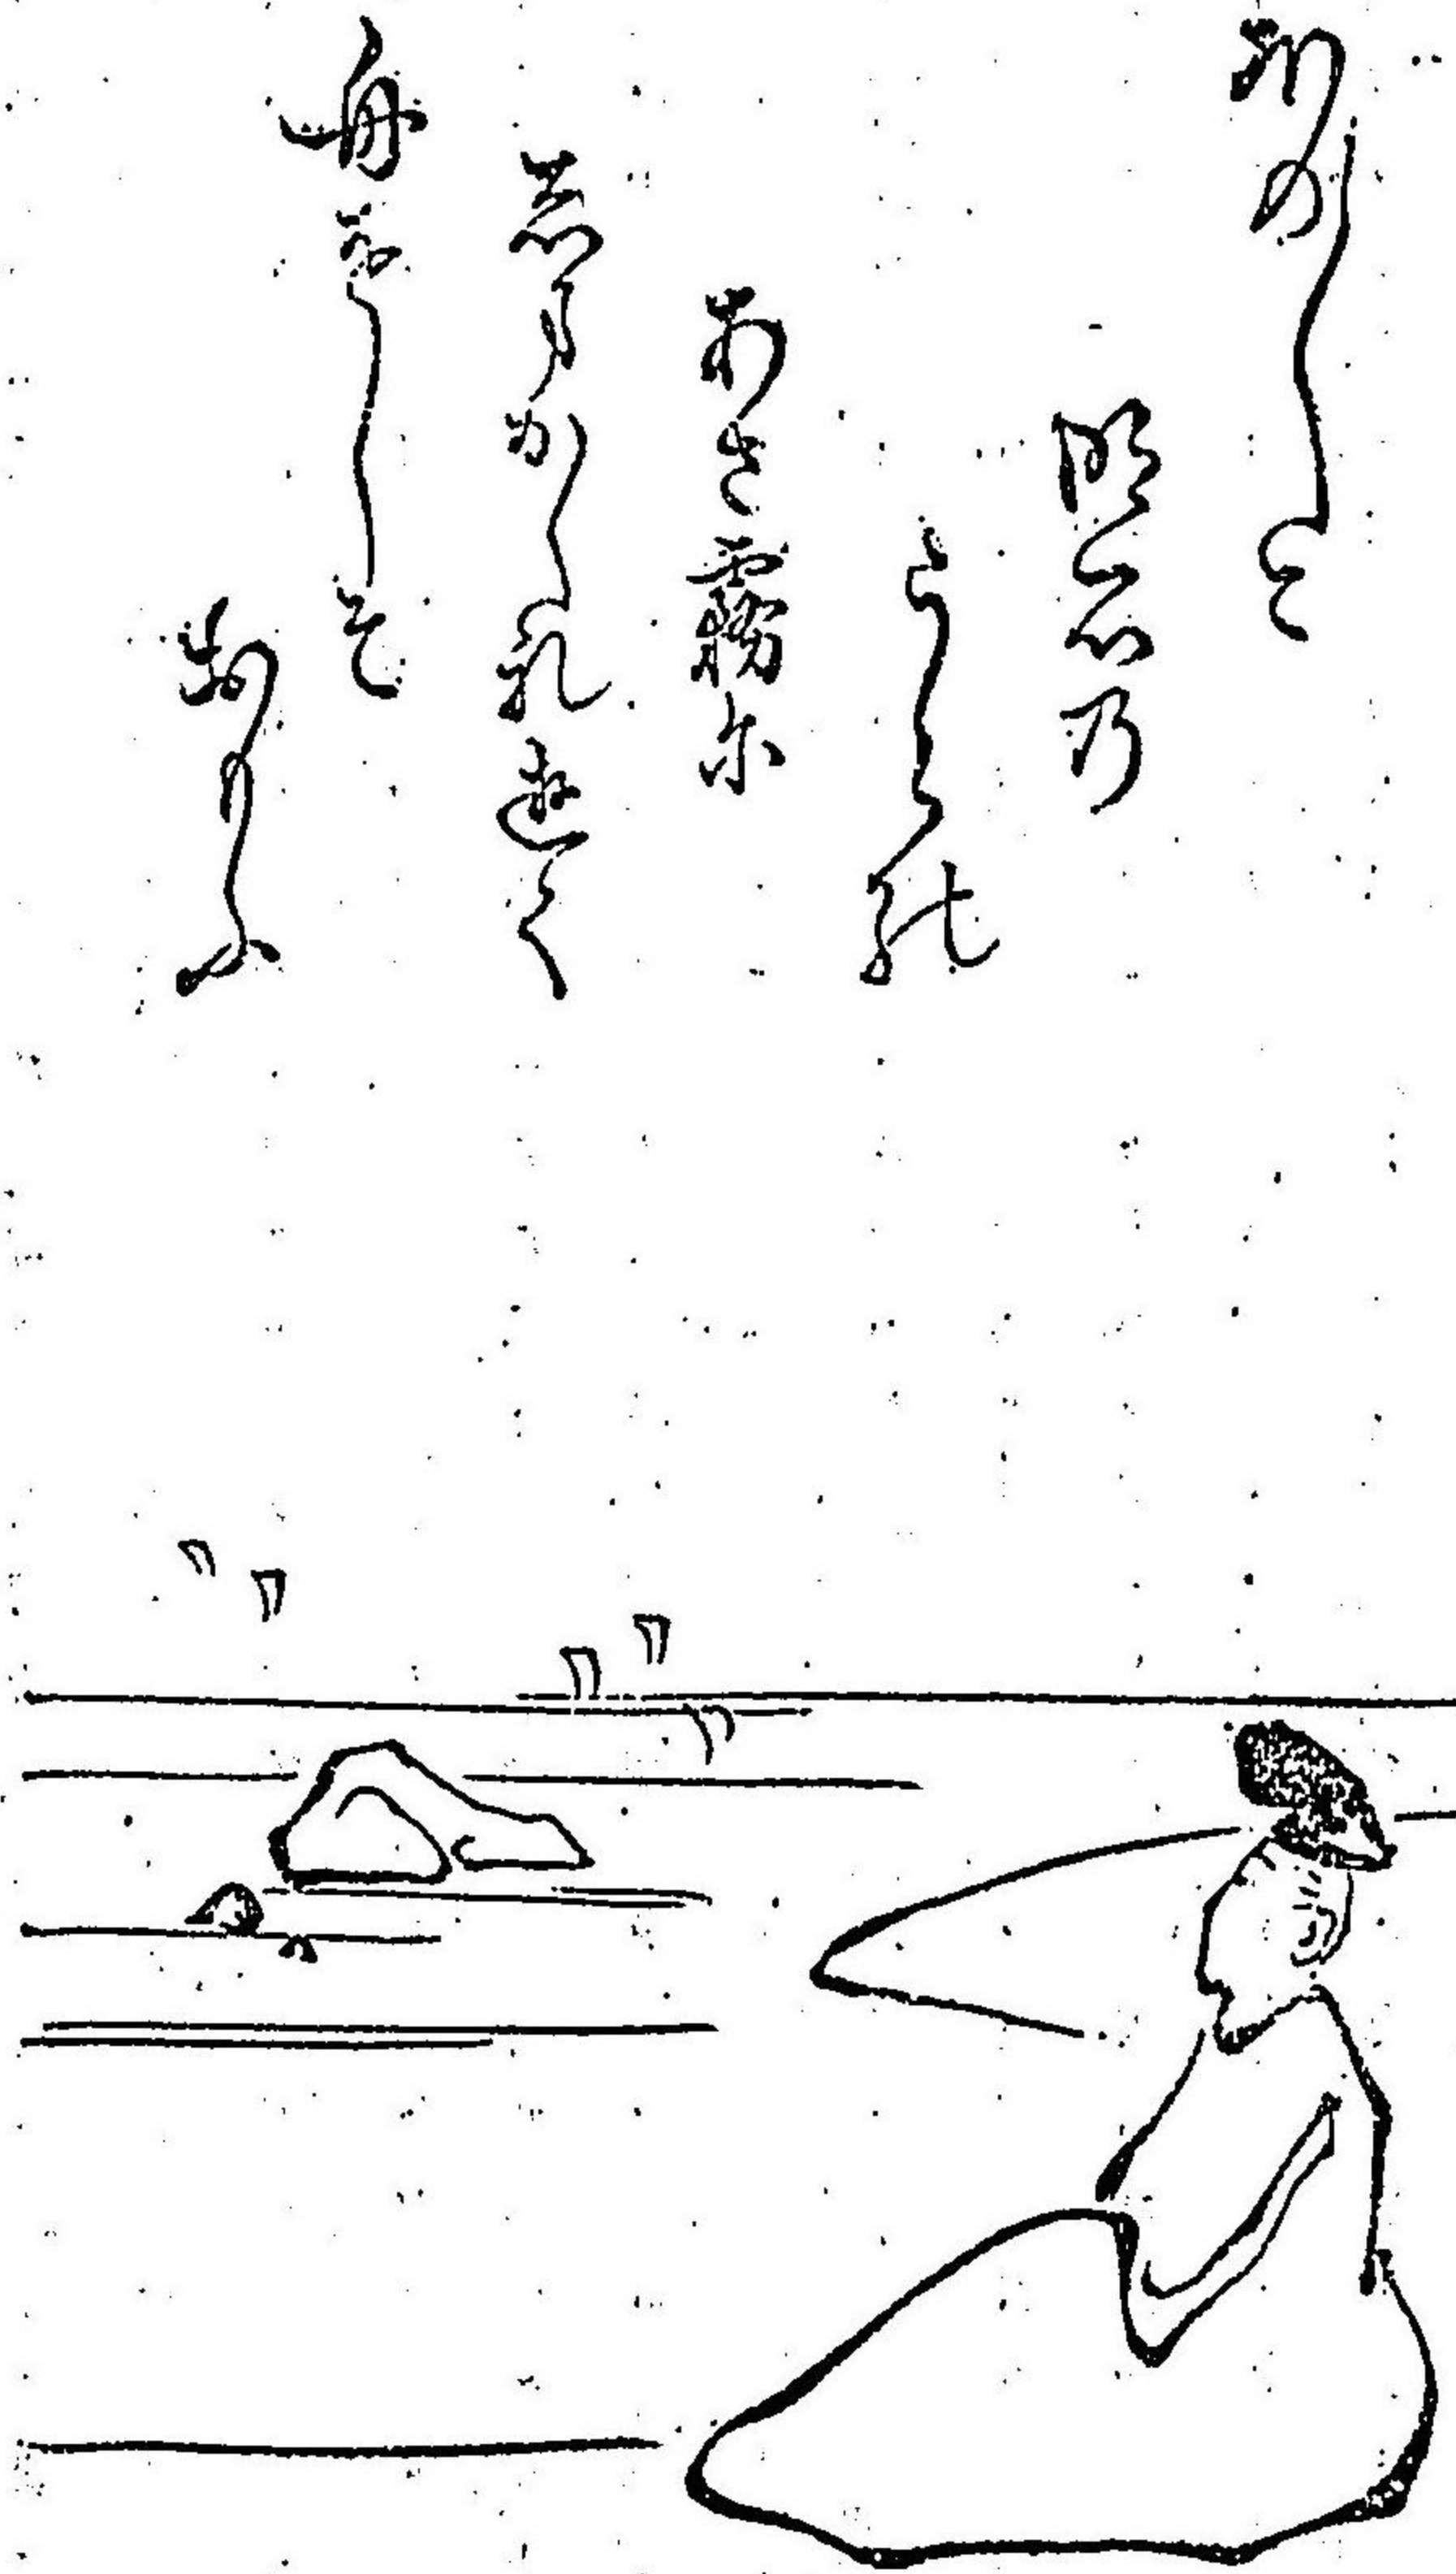 ほの〳〵と
明石乃
うら能
あさ霧尓
志まかく礼遊く
舟をしそ
おもふ